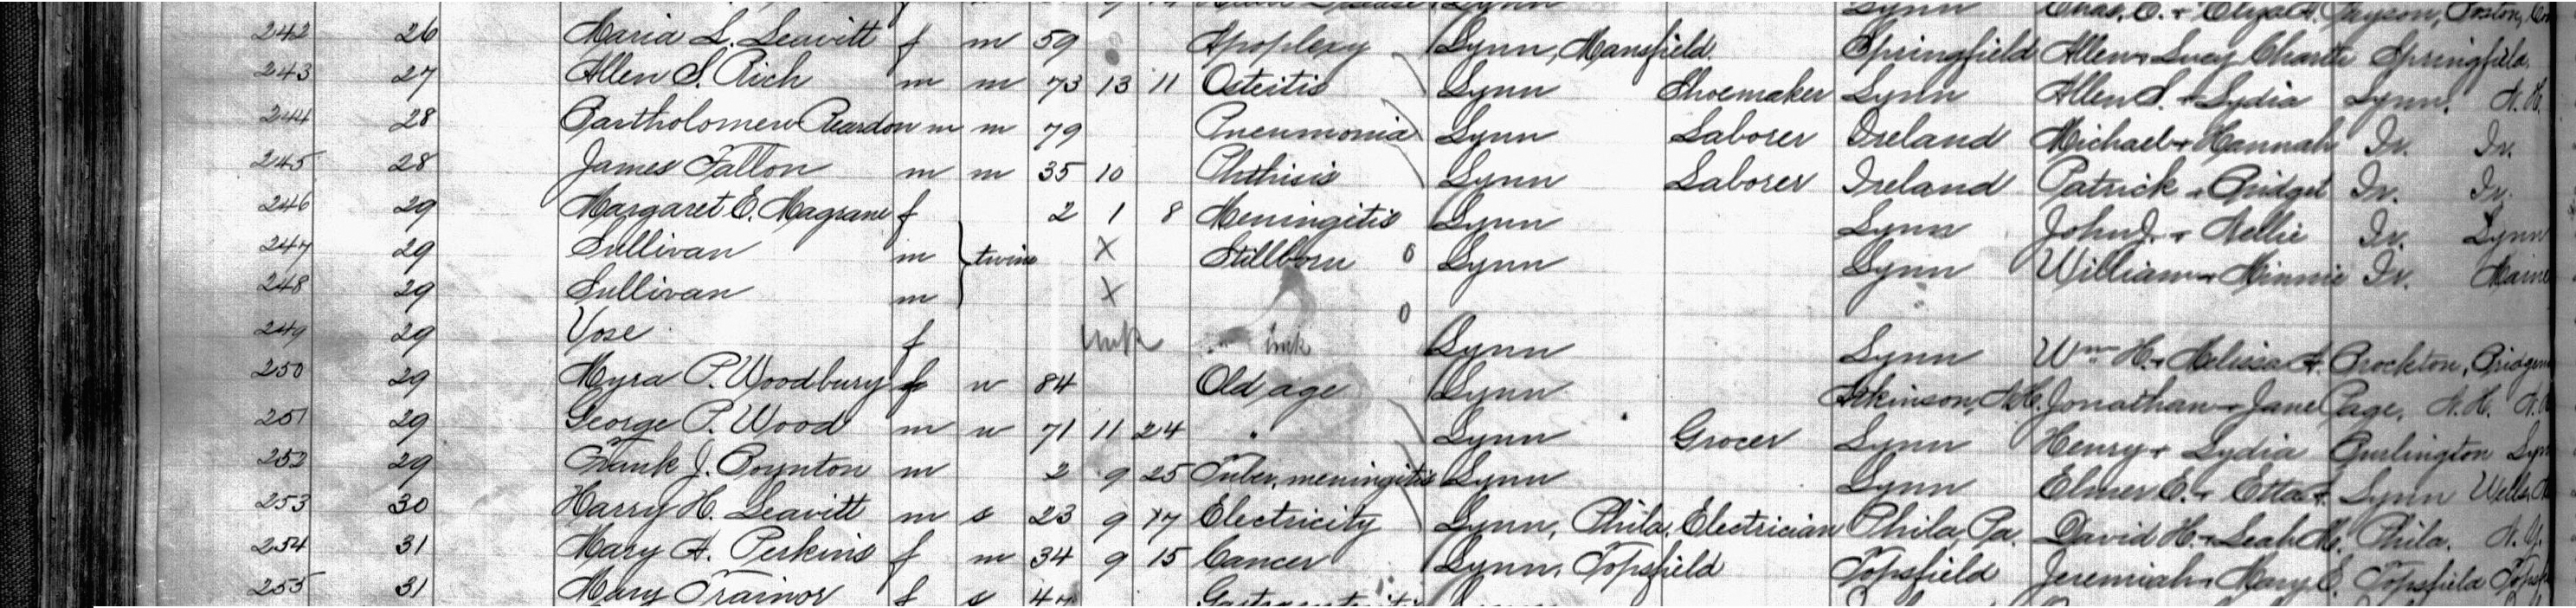 Lynn
242 26 Maria L. Leavitt f m 59 Apoplexy Lynn, Mansfield. Springfield Allen + Lucy Charte Springfield,
243 27 Allen S. Rich m m 73 13 11 Osteitis Lynn Shoemaker Lynn Allen S. + Lydia Lynn, N.H.
244 28 Bartholomew Reardon m m 79 Pneumonia Lynn Laborer Ireland Michael + Hannah Ir. Ir.
245 28 James Fallon m m 35 10 Phthisis Lynn Laborer Ireland Patrick + Bridget Ir. Ir.
246 29 Margaret E. Magrane f 2 1 8 Meningitis Lynn Lynn John J. + Nellie Ir. Lynn
247 29 Sullivan m } twins X Stillborn 0 Lynn Lynn William + Minnie Ir. Maine
248 29 Sullivan m X 0
249 29 Vose f unk " unk Lynn Lynn Wm H. + Melissa A. Brockton,
250 29 Myra P. Woodbury f w 84 Old age Lynn Atkinson, N.H. Jonathan + Jane Page, N.H.
251 29 George P. Wood m w 71 11 24 " Lynn Grocer Lynn Henry + Lydia Burlington Lyn
252 29 Frank J. Boynton m 2 9 25 Tuber. meningitis Lynn Lynn Elmer E. + Etta Lynn Wells,
253 30 Harry H. Leavitt m s 23 9 17 Electricity Lynn, Phila. Electrician Phila, Pa. David H. + Leah M. Phila. N.Y.
254 31 Mary A. Perkins f m 34 9 15 Cancer Lynn, Topsfield Topsfield Jeremiah + Mary E. Topsfield
255 31 Mary Trainor f s